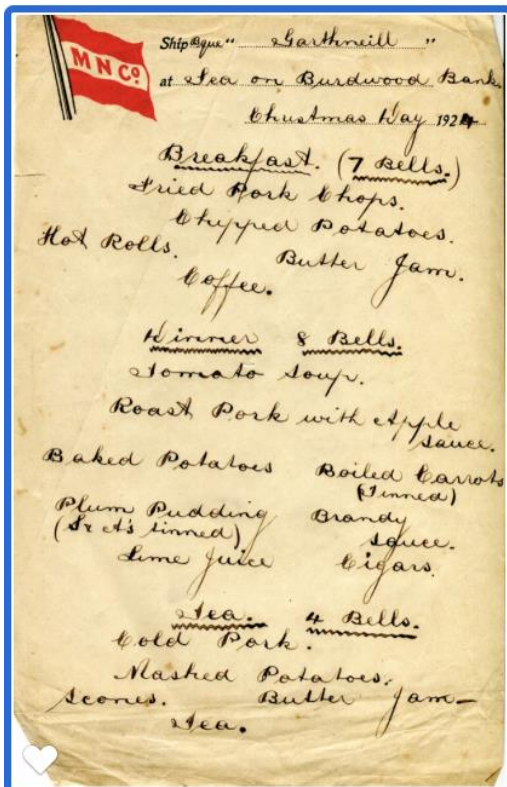 M N Co
Ship Bque "Garthneill"
at Sea on Burdwood Bank
Christmas Day 1924
Breakfast. (7 Bells.)
Fried Pork Chops.
Chipped Potatoes.
Hot Rolls. Butter Jam.
Coffee.
Dinner 8 Bells.
Tomato Soup.
Roast Pork with Apple
Sauce.
Baked Potatoes Boiled Carrots
(Tinned)
Plum Pudding Brandy
(Sr A's tinned) Sauce.
Lime Juice Cigars.
Tea. 4 Bells.
Cold Pork.
Mashed Potatoes.
Scones. Butter Jam-
Tea.